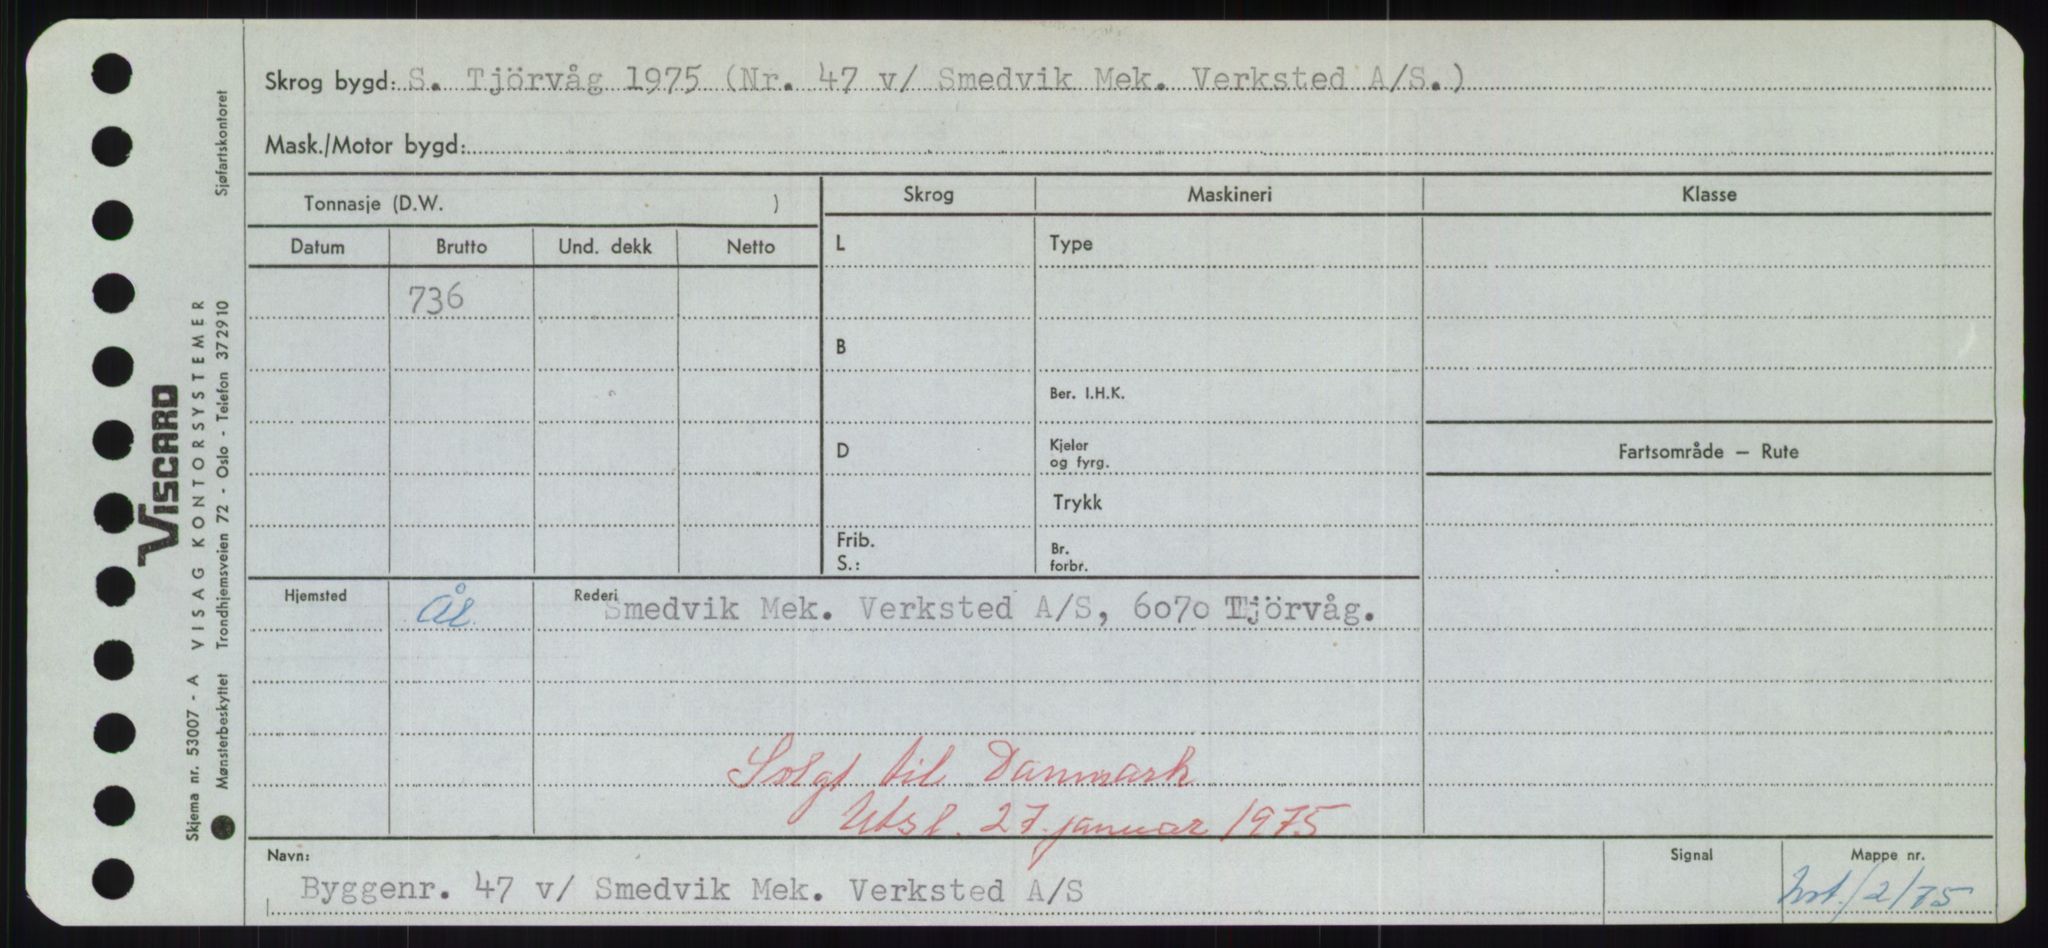 Skrog bygd: S. Tjörvåg 1975 (Nr. 47 v/ Smedvik Mek. Verksted A/S.)
Mask./Motor bygd:
Tonnasje (D.W. )
Skrog Maskineri Klasse
Datum Brutto Und. dekk Netto
L Type
736
B
Ber. I.H.K.
D Kjeler og fyrg.
Fartsområde — Rute
Trykk
Frib. Br.
S.: forbr.
Hjemsted Ål Rederi Smedvik Mek. Verksted A/S, 6070 Tjörvåg.
Solgt til Danmark
Utsl. 27. januar 1975
Navn: Signal Mappe nr.
Byggenr. 47 v/ Smedvik Mek. Verksted A/S /2/75
Skjema nr. 53007 - A VISAG KONTORSYSTEMER
Mønsterbeskyttet Trondhjemsveien 72 - Oslo - Telefon 372910 Sjøfartskontoret
VISCARD